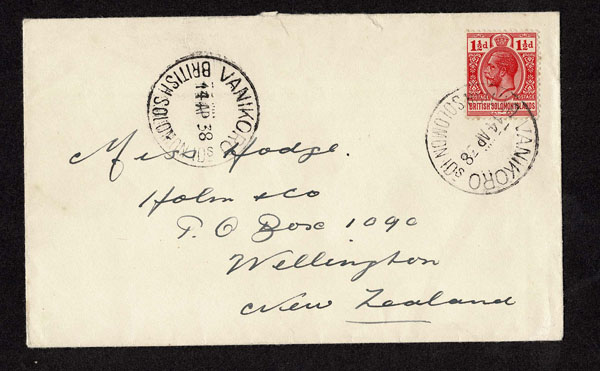 VANIKORO
14 AP 38
BRITISH SOLOMON IDS
1½d 1½d
POSTAGE POSTAGE
BRITISH SOLOMON ISLANDS
VANIKORO
14 AP 38
SOLOMON IDS
Miss Hodge.
Holm & Co
P.O Box 1090
Wellington
New Zealand